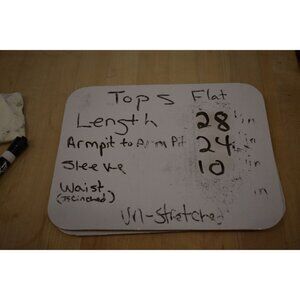 Tops Flat
Length 28 in
Armpit to Arm Pit 24 in
Sleeve 10 in
Waist in
(if Cinched)
Un-Stretched